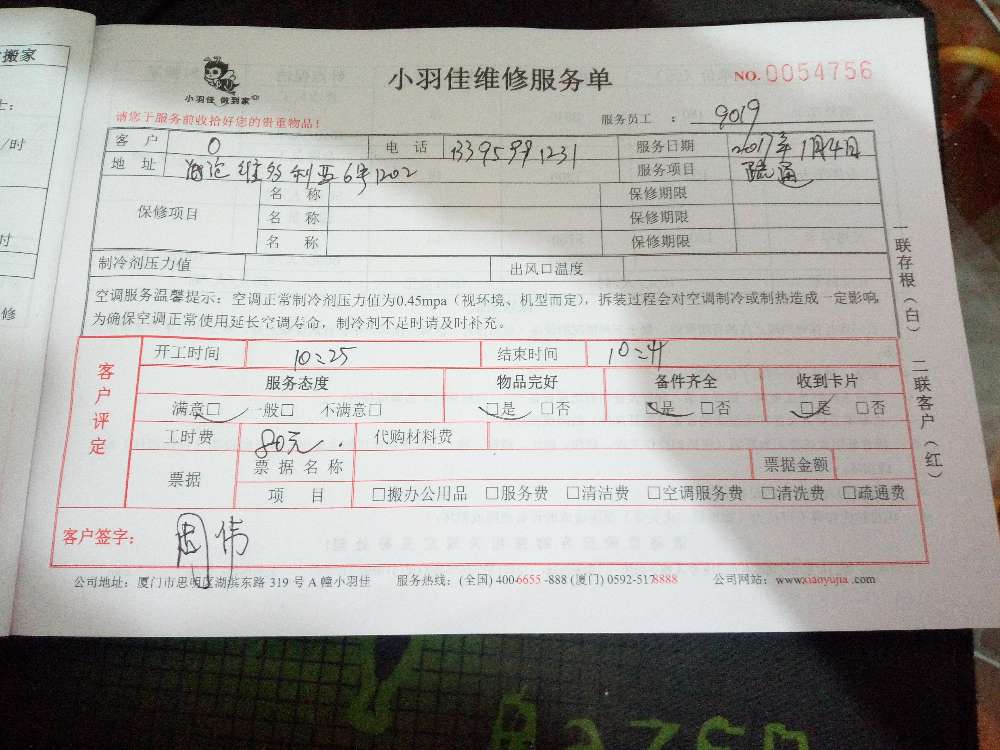 搬家
/时
时
修
小羽佳 做到家
小羽佳维修服务单
NO. 0054756
请您于服务前收拾好您的贵重物品！
服务员工 ： 9019
客 户 0 电 话 13395991231 服务日期 2017年1月4日
地 址 海沧维多利亚6号1202 服务项目 疏通
保修项目 名 称 保修期限
名 称 保修期限
名 称 保修期限
制冷剂压力值 出风口温度
空调服务温馨提示：空调正常制冷剂压力值为0.45mpa（视环境、机型而定），拆装过程会对空调制冷或制热造成一定影响，
为确保空调正常使用延长空调寿命，制冷剂不足时请及时补充。
客户评定
开工时间 10:25 结束时间 10:41
服务态度 物品完好 备件齐全 收到卡片
满意□ 一般□ 不满意□ □是 □否 □是 □否 □是 □否
工时费 80元. 代购材料费
票据 票 据 名 称 票据金额
项 目 □搬办公用品 □服务费 □清洁费 □空调服务费 □清洗费 □疏通费
客户签字： 周伟
公司地址：厦门市思明区湖滨东路 319 号 A 幢小羽佳 服务热线：(全国) 400-6655-888 (厦门) 0592-5178888 公司网站：www.xiaoyujia.com
一联存根（白） 二联客户（红）